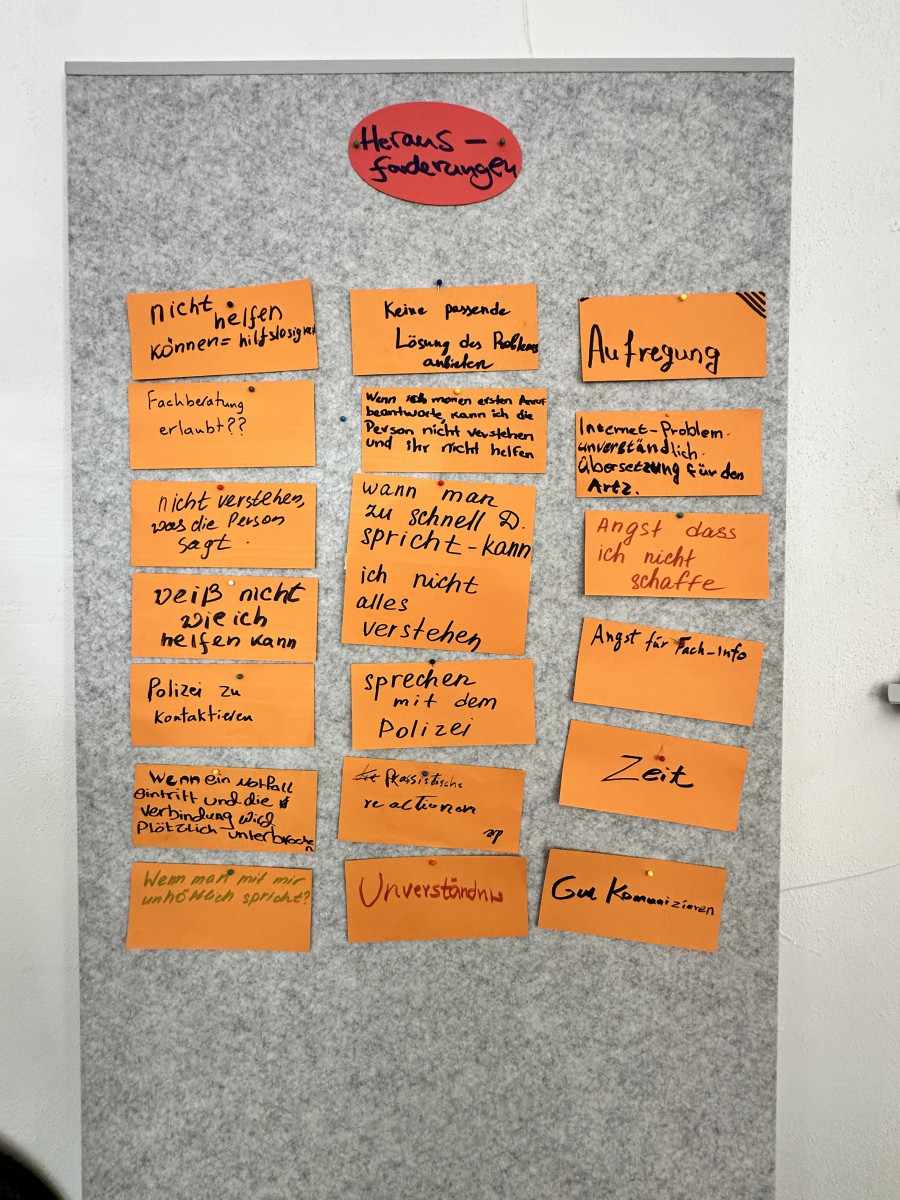 Heraus-
forderungen
nicht helfen
können = hilfslosigkeit
Fachberatung
erlaubt??
nicht verstehen,
was die Person
sagt.
weiß nicht
wie ich
helfen kann
Polizei zu
kontaktieren
Wenn ein Notfall
eintritt und die
verbindung wird
Plötzlich unterbrochen
Wenn man mit mir
unhöflich spricht?
Keine passende
Lösung des Problems
anbieten
Wenn ich meinen ersten Anruf
beantworte, kann ich die
Person nicht verstehen
und ihr nicht helfen
wann man
zu schnell D.
spricht-kann
ich nicht
alles
verstehen
sprechen
mit dem
Polizei
reactionen
Unverständnis
Aufregung
Internet-Problem.
unverständlich.
Übersetzung für den
Artz.
Angst dass
ich nicht
schaffe
Angst für Fach-Info
Zeit
Gut Kommunizieren